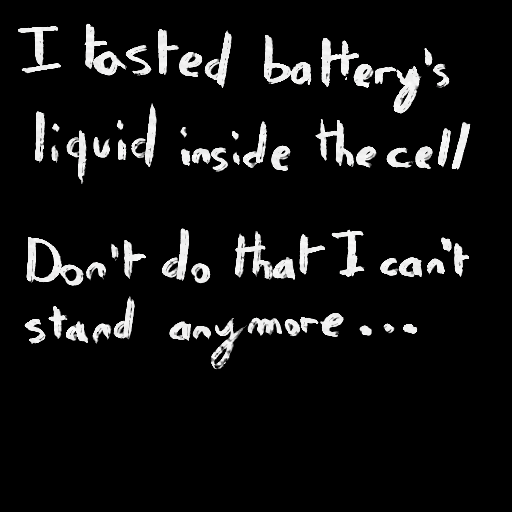 I tasted battery's
liquid inside the cell
Don't do that I can't
stand anymore...